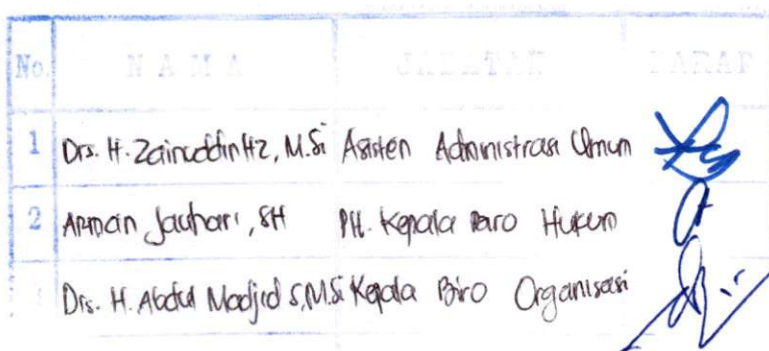 No. NAMA JABATAN PARAF
1 Drs. H. Zainuddin Hz, M.Si Asisten Administrasi Umum
2 Arman Jauhari, SH Plt. Kepala Biro Hukum
Drs. H. Abdul Madjid S, M.Si Kepala Biro Organisasi